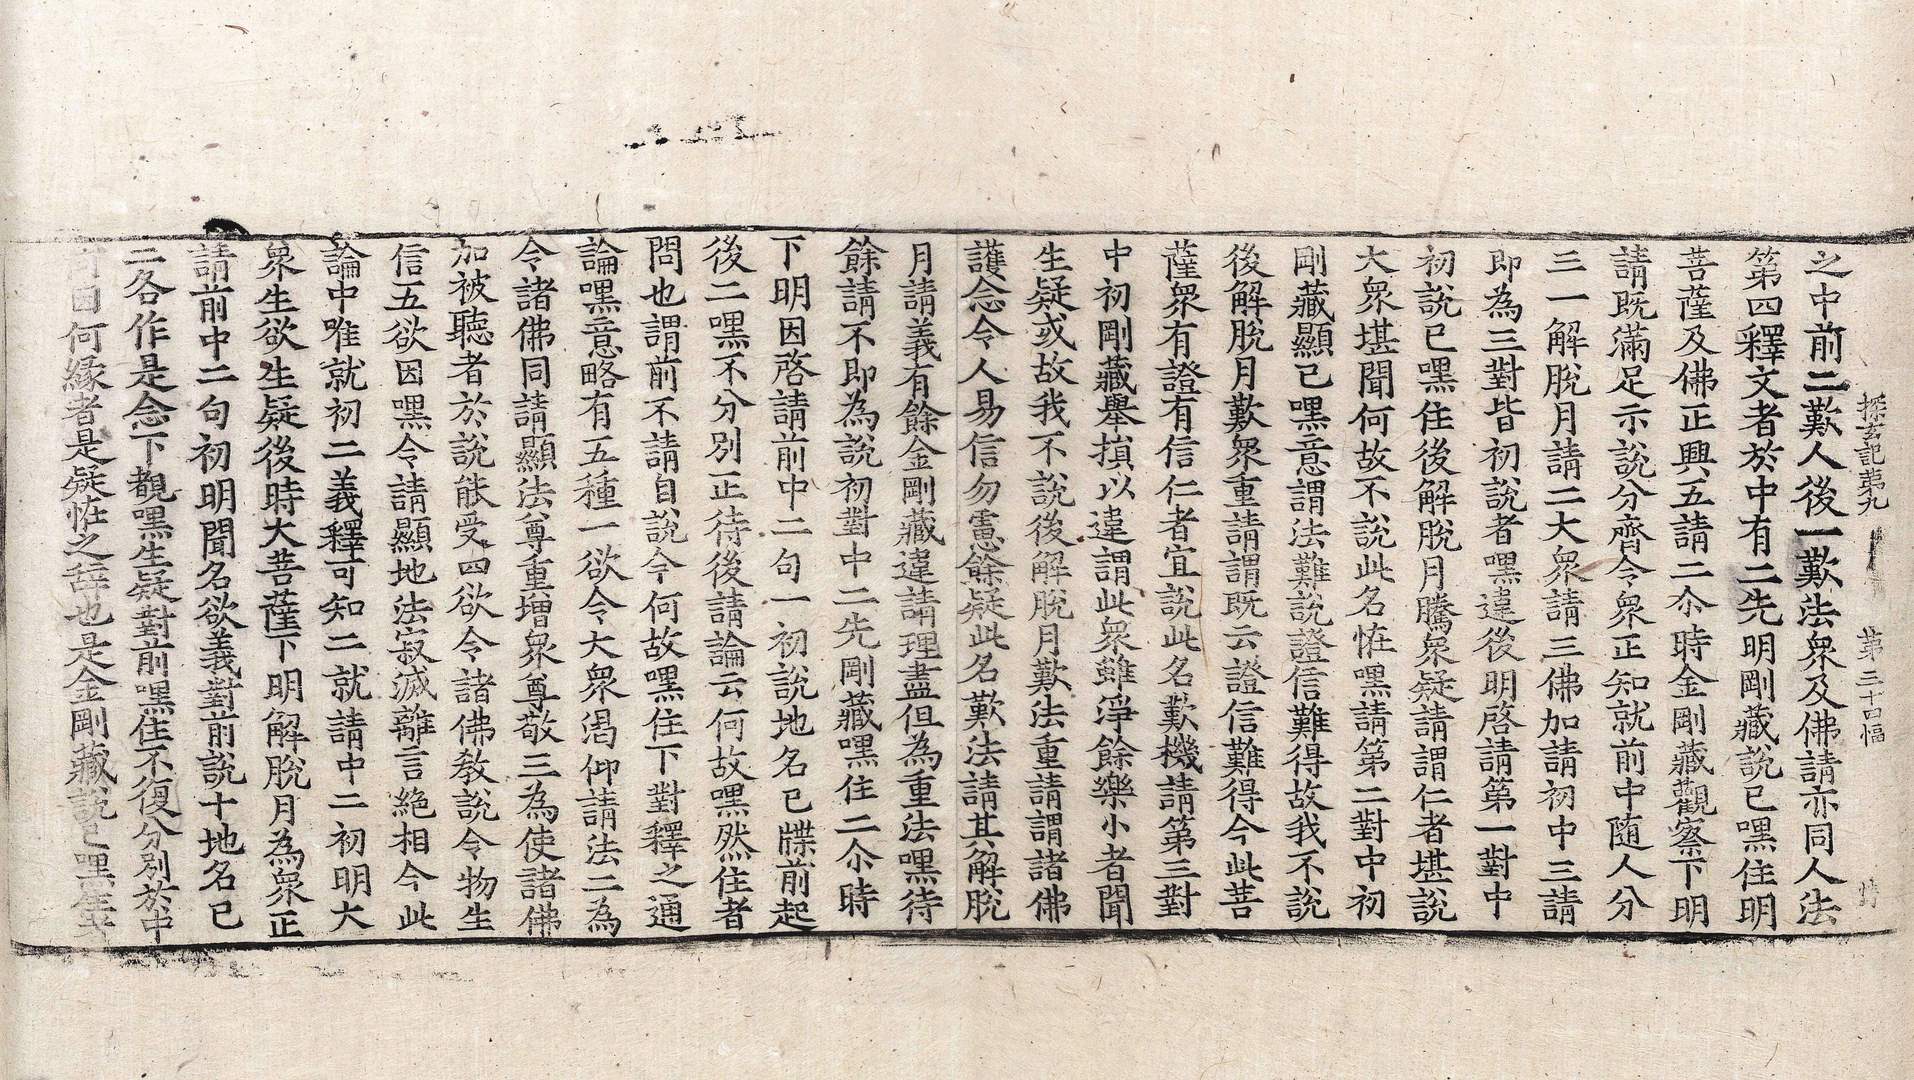 探玄記第九　第三十口幅
之中前二歎人後一歎法衆及佛請亦同人法
第四釋文者於中有二先明剛藏說已嘿住明
菩薩及佛正興五請二尒時金剛藏觀察下明
請既滿足示說分齊令衆正知就前中随人分
三一解脫月請二大衆請三佛加請初中三請
即為三對皆初說者嘿違後明啓請第一對中
初說已嘿住後解脫月騰衆疑請謂仁者堪說
大衆堪聞何故不說此名恠嘿請第二對中初
剛藏顯己嘿意謂法難說證信難得故我不說
後解脫月歎衆重請謂既云證信難得今此菩
薩衆有證有信仁者宜說此名歎機請第三對
中初剛藏舉損以違謂此衆雖淨餘樂小者聞
生疑或故我不說後解脫月歎法重請謂諸佛
護念令人易信勿慮餘疑此名歎法請其解脫
月請義有餘金剛藏違請理盡但為重法嘿待
餘請不即為說初對中二先剛藏嘿住二尒時
下明因啓請前中二句一初說地名已牒前起
後二嘿不分別正待後請論云何故嘿然住者
問也謂前不請自說今何故嘿住下對釋之通
論嘿意略有五種一欲令大衆渴仰請法二為
令諸佛同請顯法尊重增衆尊敬三為使諸佛
加被聽者於說能受四欲令諸佛教說令物生
信五欲因嘿令請顯地法寂滅離言絶相今此
論中唯就初二義釋可知二就請中二初明大
衆生欲生疑後時大菩薩下明解脫月為衆正
請前中二句初明聞名欲義對前說十地名已
二各作是念下覩嘿生疑對前嘿住不復分別於中
何因何緣者是疑恠之辞也是金剛藏說已嘿